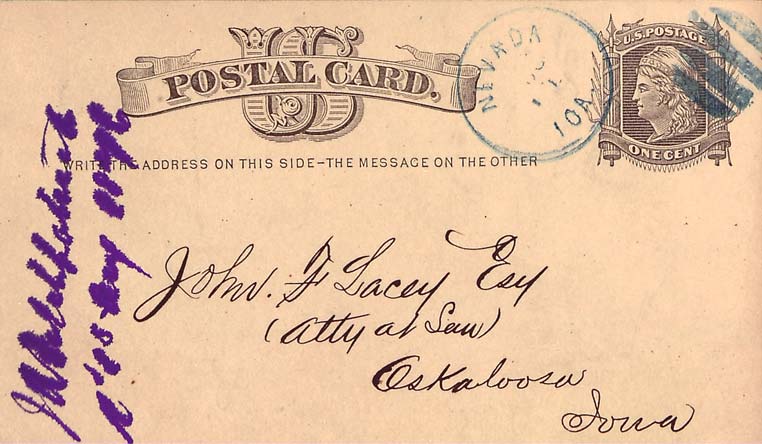 POSTAL CARD.
U.S. POSTAGE
ONE CENT
NEVADA
IOA
WRITE THE ADDRESS ON THIS SIDE–THE MESSAGE ON THE OTHER
John. F Lacey Esq
(Atty at Law)
Oskaloosa
Iowa